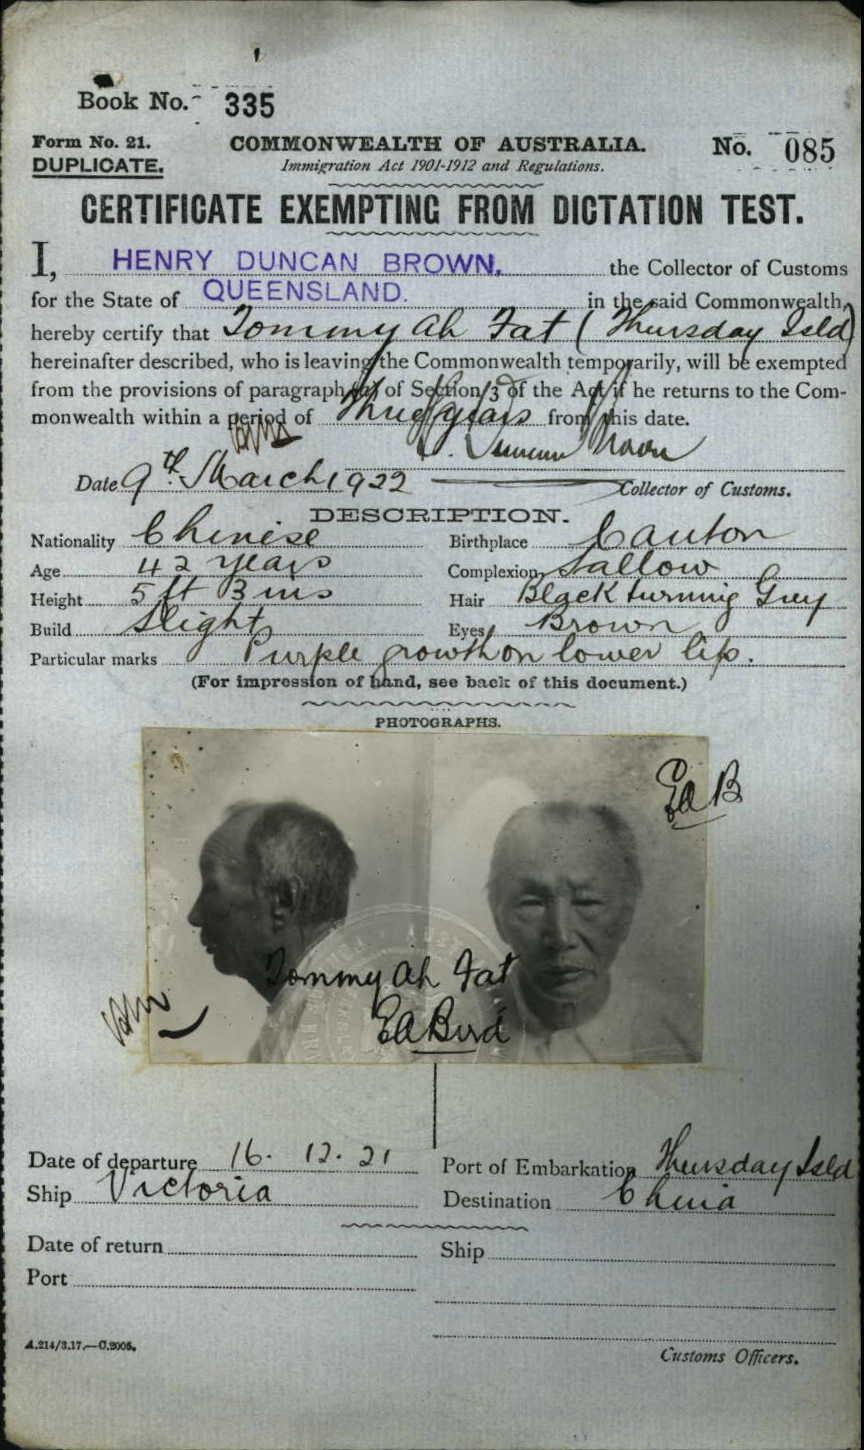 Book No. 335
Form No. 21.
DUPLICATE.
COMMONWEALTH OF AUSTRALIA.
Immigration Act 1901-1912 and Regulations.
No. 085
CERTIFICATE EXEMPTING FROM DICTATION TEST.
I, HENRY DUNCAN BROWN, the Collector of Customs
for the State of QUEENSLAND. in the said Commonwealth,
hereby certify that Tommy Ah Fat (Thursday Isld)
hereinafter described, who is leaving the Commonwealth temporarily, will be exempted
from the provisions of paragraph (a) of Section 3 of the Act if he returns to the Com-
monwealth within a period of three years from this date.
Date 9th March 1922
Collector of Customs.
DESCRIPTION.
Nationality Chinese Birthplace Canton
Age 42 years Complexion Sallow
Height 5 ft 3 ins Hair Black turning Grey
Build Slight Eyes Brown
Particular marks Purple growth on lower lip.
(For impression of hand, see back of this document.)
PHOTOGRAPHS.
EAB
Tommy Ah Fat
EA Bird
Date of departure 16. 12. 21 Port of Embarkation Thursday Isld
Ship Victoria Destination China
Date of return Ship
Port
A.214/3.17.—C.2005.
Customs Officers.